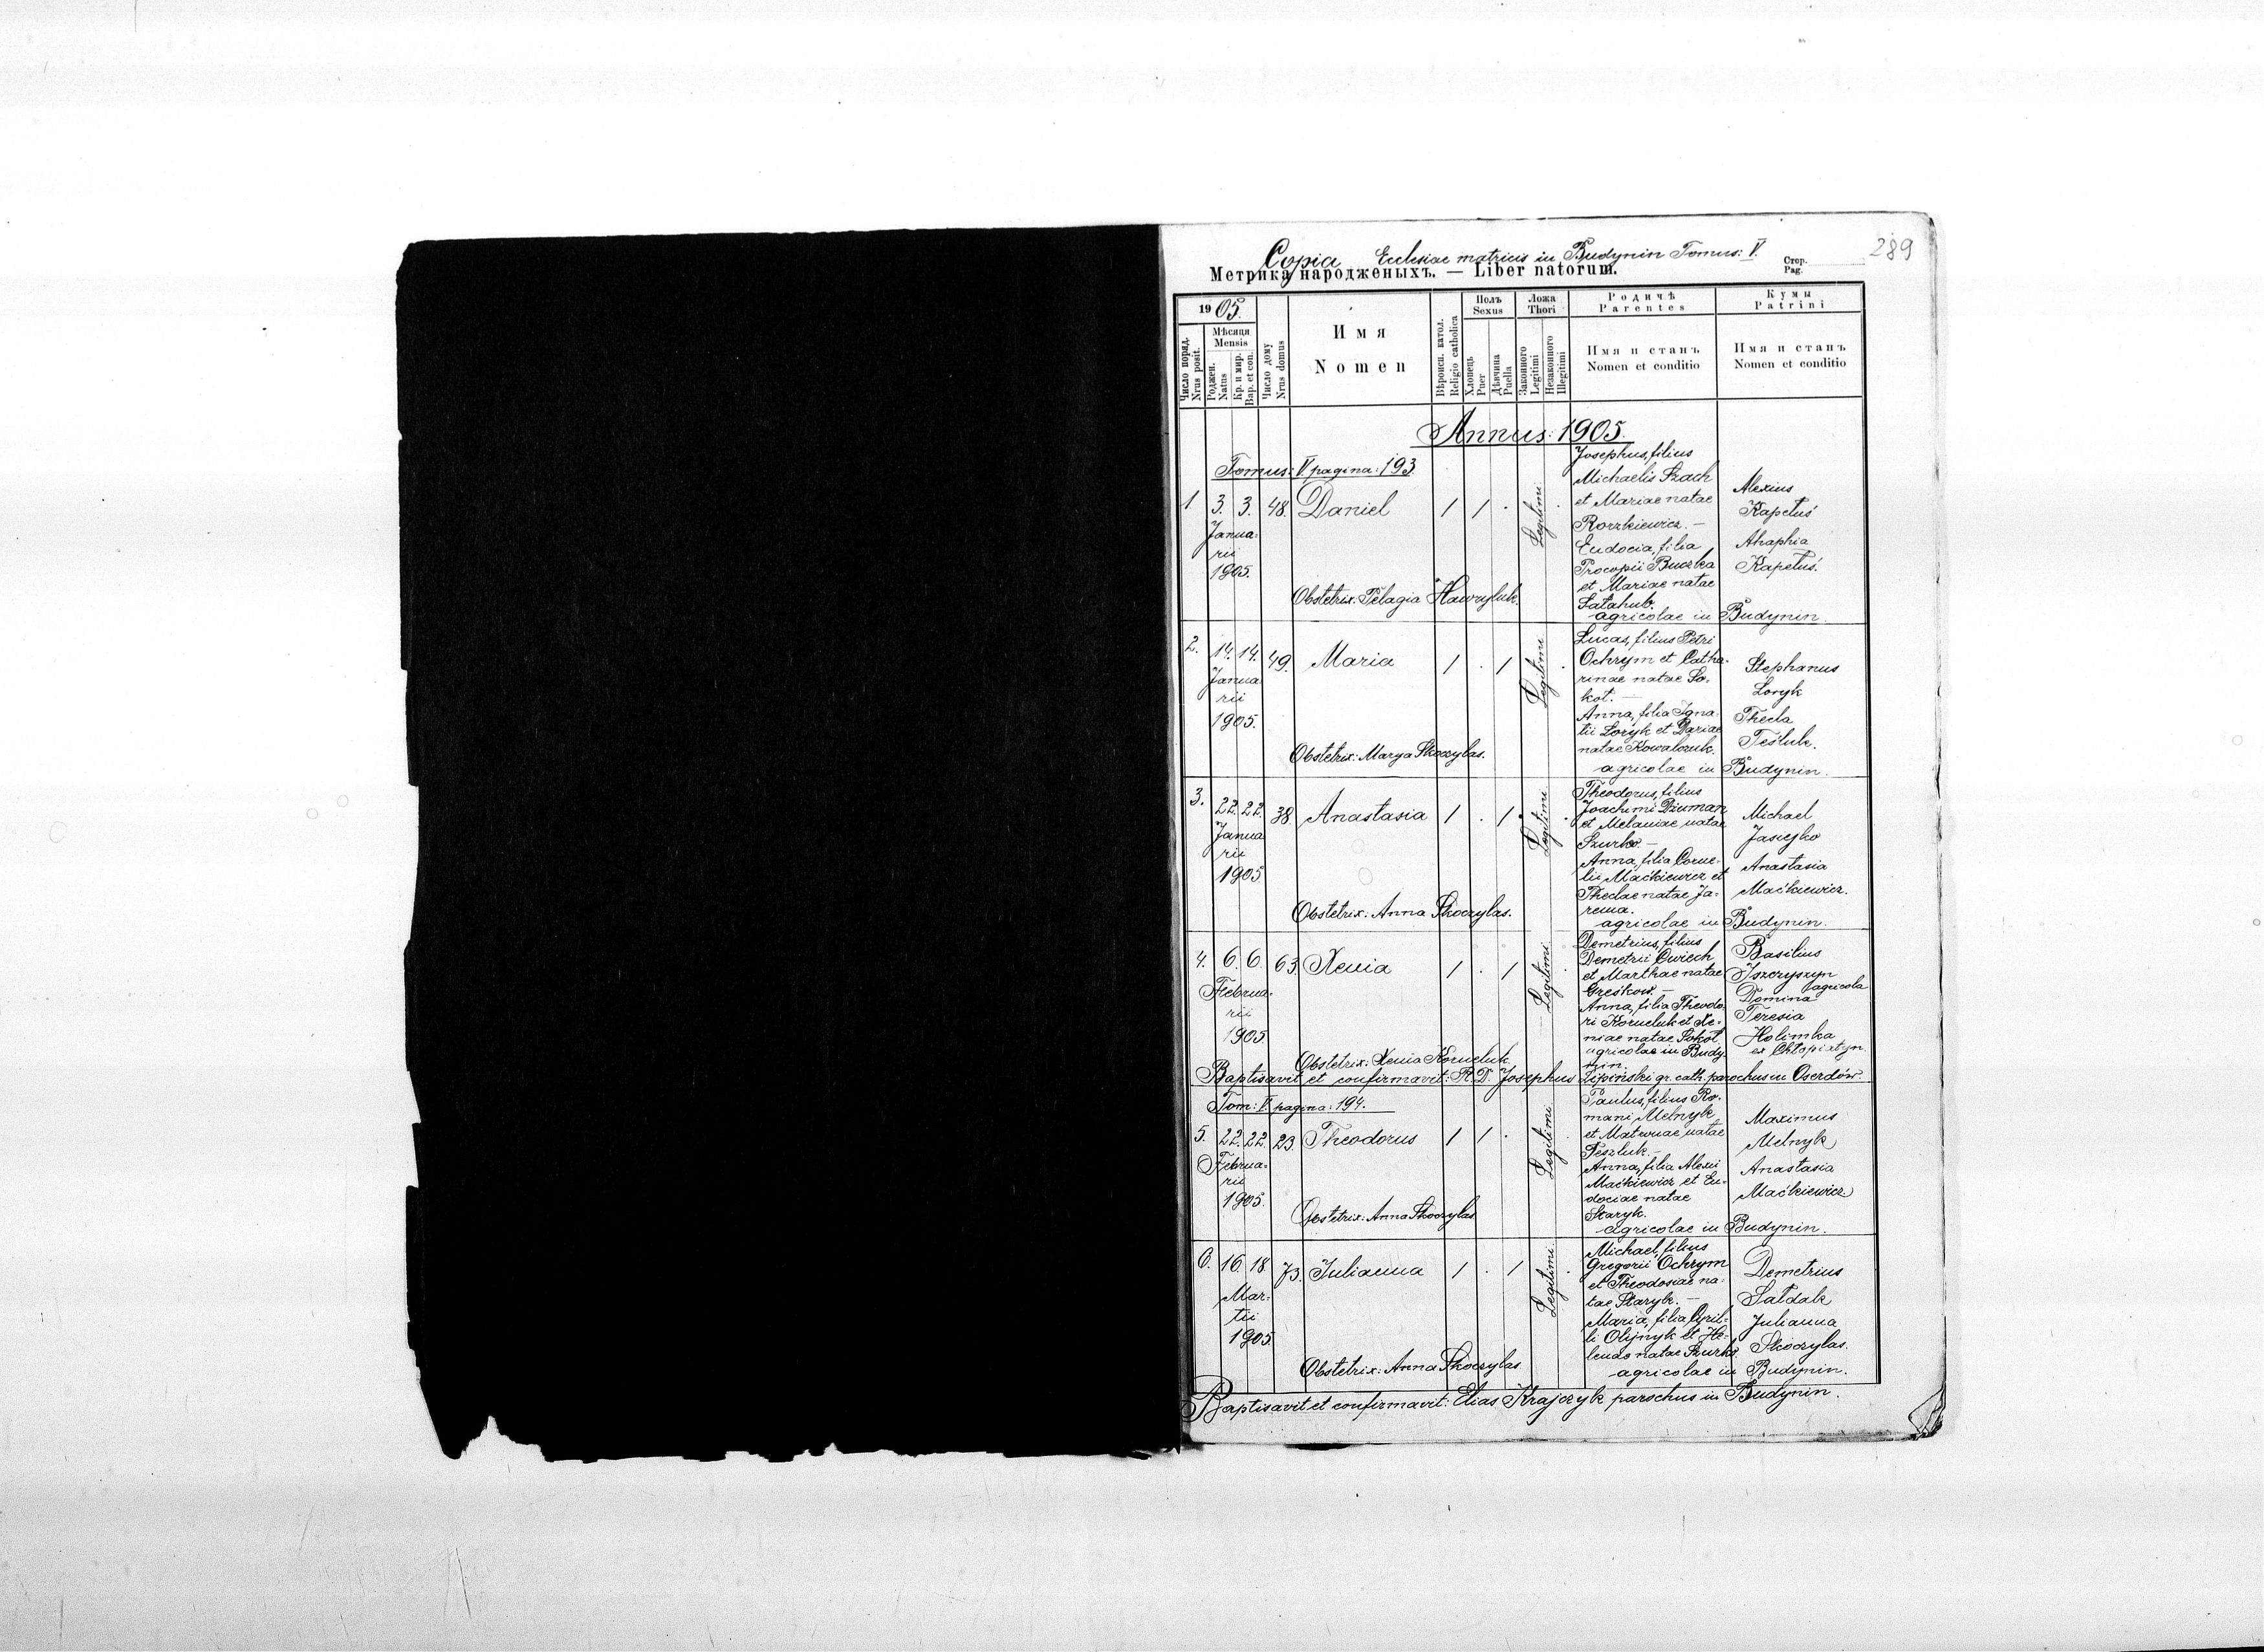 289
Copia Ecclesiae matricis in Budynin Tomus: V.
Метрика народженыхъ. — Liber natorum.
Стор.
Pag.
1905.
Число поряд.
Nrus posit.
Мѣсяця
Mensis
Роджен.
Natus
Кр. и мир.
Bap. et con.
Число дому
Nrus domus
Имя
Nomen
Вѣроисп. катол.
Religio catholica
Полъ
Sexus
Хлопець
Puer
Дѣвчина
Puella
Ложа
Thori
Законного
Legitimi
Незаконного
Illegitimi
Родичѣ
Parentes
Имя и станъ
Nomen et conditio
Кумы
Patrini
Имя и станъ
Nomen et conditio
Annus: 1905.
Tomus: V. pagina: 193
1 3. 3. 48. Daniel / / . Legitimi .
Janua-
rii
1905.
Josephus, filius
Michaelis Szach
et Mariae natae
Roszkiewicz. —
Eudocia, filia
Procopii Buczka
et Mariae natae
Satahub.
agricolae in Budynin.
Alexius
Kapetuś
Ahaphia
Kapetuś.
Obstetrix: Pelagia Hawryluk.
2. 14. 14. 49. Maria / . / Legitimi .
Janua
rii
1905.
Lucas, filius Petri
Ochrym et Catha-
rinae natae So-
kot. —
Anna, filia Igna-
tii Loryk et Dariae
natae Kowalczuk.
agricolae in Budynin.
Stephanus
Loryk
Thecla
Teśluk.
Obstetrix: Marya Skoczylas.
3. 22. 22. 38. Anastasia / . / Legitimi .
Janua
rii
1905
Theodorus, filius
Joachimi Dżuman
et Melaniae natae
Szurko. —
Anna, filia Corne-
lii Maćkiewicz et
Theclae natae Ja-
rema.
agricolae in Budynin.
Michael
Jasiejko
Anastasia
Maćkiewicz.
Obstetrix: Anna Skoczylas.
4. 6. 6. 63. Xenia / . / Legitimi .
Februa-
rii
1905.
Demetrius, filius
Demetrii Cwiech
et Marthae natae
Greśkow. —
Anna, filia Theodo-
ri Korneluk et Xe-
niae natae Sokot
agricolae in Budy-
nin.
Basilius
Iszczyszyn
agricola
Domina
Teresia
Holimka
ex Chłopiatyn.
Obstetrix: Xenia Korneluk.
Baptisavit et confirmavit: R. D. Josephus Lipiński gr. cath. parochus in Oserdów.
Tom: V. pagina: 194.
5. 22. 22. 23. Theodorus / / . Legitimi .
Februa-
rii
1905.
Paulus, filius Ro-
mani Melnyk
et Matronae natae
Teszluk. —
Anna, filia Alexii
Maćkiewicz et Eu-
dociae natae
Staryk.
agricolae in Budynin.
Maximus
Melnyk
Anastasia
Maćkiewicz.
Obstetrix: Anna Skoczylas
6. 16. 18. 73. Julianna / . / Legitimi .
Mar-
tii
1905.
Michael, filius
Gregorii Ochrym
et Theodosiae na-
tae Staryk. —
Maria, filia Cyril-
li Olijnyk et He-
lenae natae Szurko.
agricolae in Budynin.
Demetrius
Sałdak
Julianna
Skoczylas.
Obstetrix: Anna Skoczylas
Baptisavit et confirmavit: Elias Krajczyk parochus in Budynin.